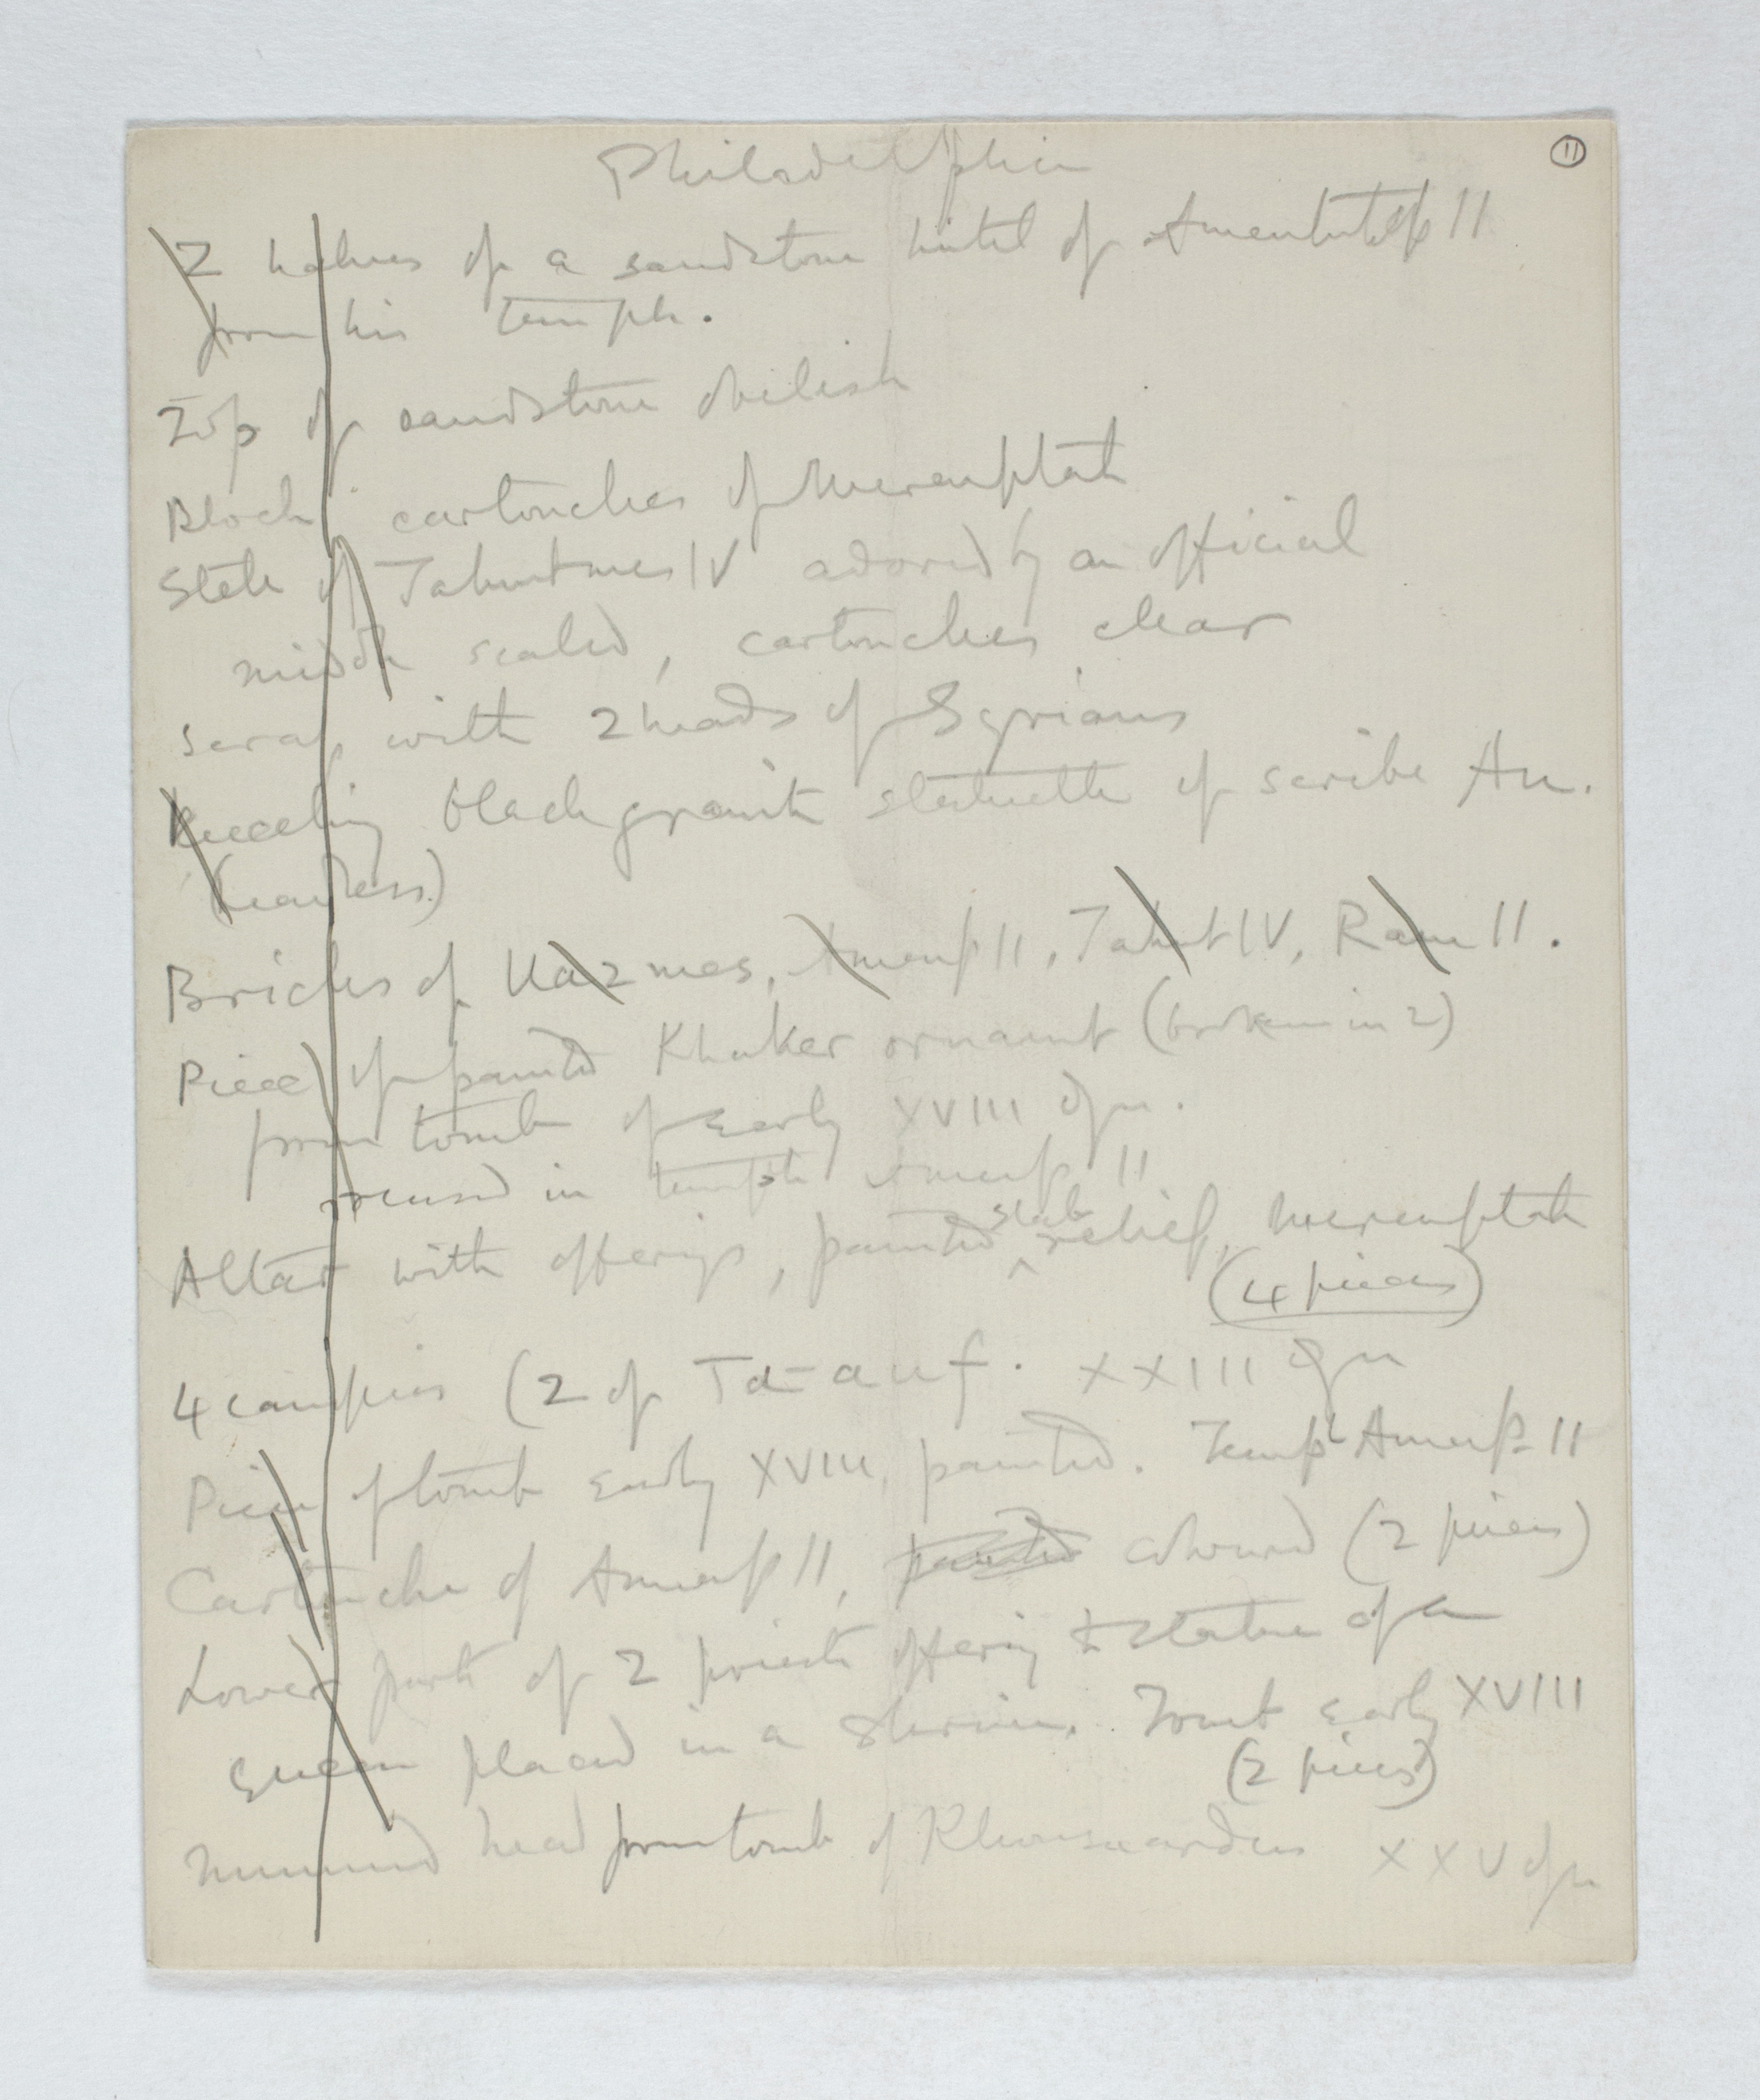 Philadelphia
11
2 halves of a sandstone lintel of Amenhotep II
from his temple.
Top of sandstone obelisk
Block cartouches of Merenptah
Stele of Tahutmes IV adored by an official
middle scaled, cartouches clear
scrap with 2 heads of Syrians
Kneeling black granite statuette of scribe An.
(headless)
Bricks of Uazmes, Amenp II, Tahut IV, Ram II.
Piece of painted Khaker ornamt (broken in 2)
from tomb of early XVIII dyn.
reused in temple Amenp II
Altar with offerings, painted slab relief, Merenptah
(4 pieces)
4 canopics (2 of Ta-auf. XXIII dyn
Piece of tomb early XVIII, painted. Templ Amenp II
Cartouche of Amenp II, painted coloured (2 pieces)
Lower part of 2 priests offering to statue of a
queen placed in a shrine. Tomb early XVIII
(2 pieces)
head from tomb of Khonsuardus XXV dyn